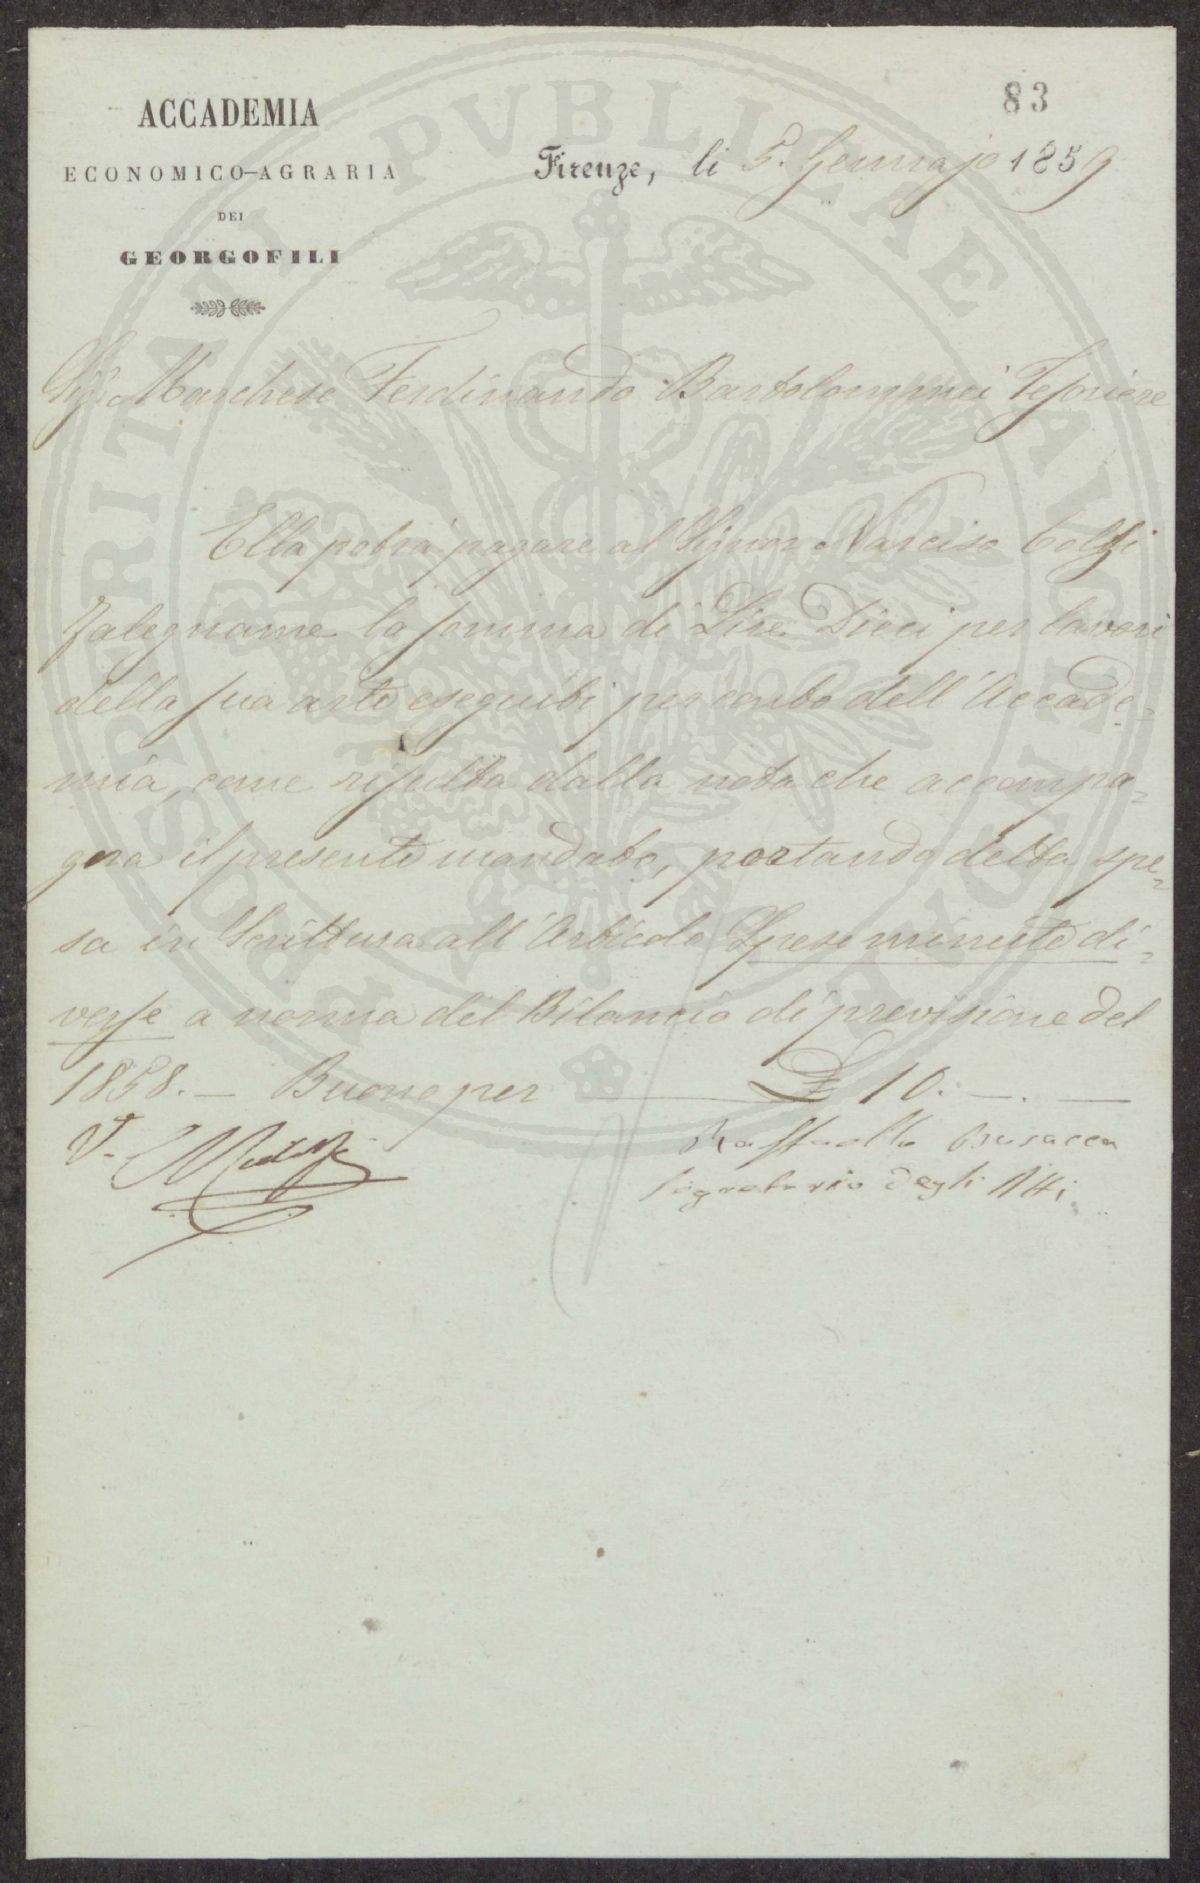 83
ACCADEMIA
ECONOMICO-AGRARIA
DEI
GEORGOFILI
Firenze, li 5. Gennajo 1859
Sig. Marchese Ferdinando Bartolommei Tesoriere
Ella potrà pagare al Signor Narciso Colzi
Falegname la somma di Lire Dieci per lavori
della sua arte eseguiti per conto dell'Accade=
mia, come risulta dalla nota che accompa=
gna il presente mandato, portando detta spe=
sa in Scrittura all'Articolo Spese minute di=
verse a norma del Bilancio di previsione del
1858. — Buono per £ 10. —. —
V.
Raffaello Busacca
Segretario degli Atti
PROSPERITATI PVBLICAE AVGENDAE